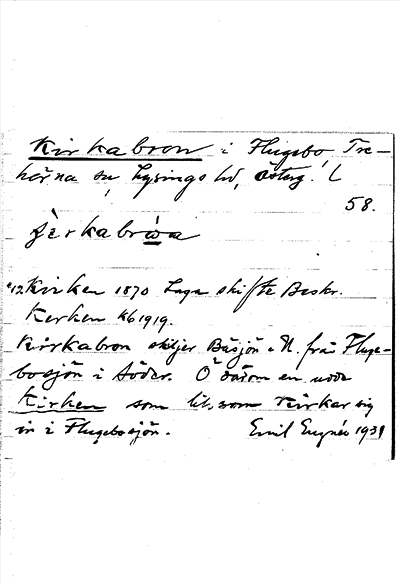 Kirkabron i Flugebo, Tre-
hörna sn, Lysings hd, Österg. L
58.
jèrkabrωa
Kirken 1870 Laga skifte Beskr.
Kerken kb 1919.
Kirkabron skiljer Båsjön i N. från Fluge-
bosjön i söder. Ö därom en udde
Kirken som lit. som kirkar sig
in i Flugebosjön. Emil 1931